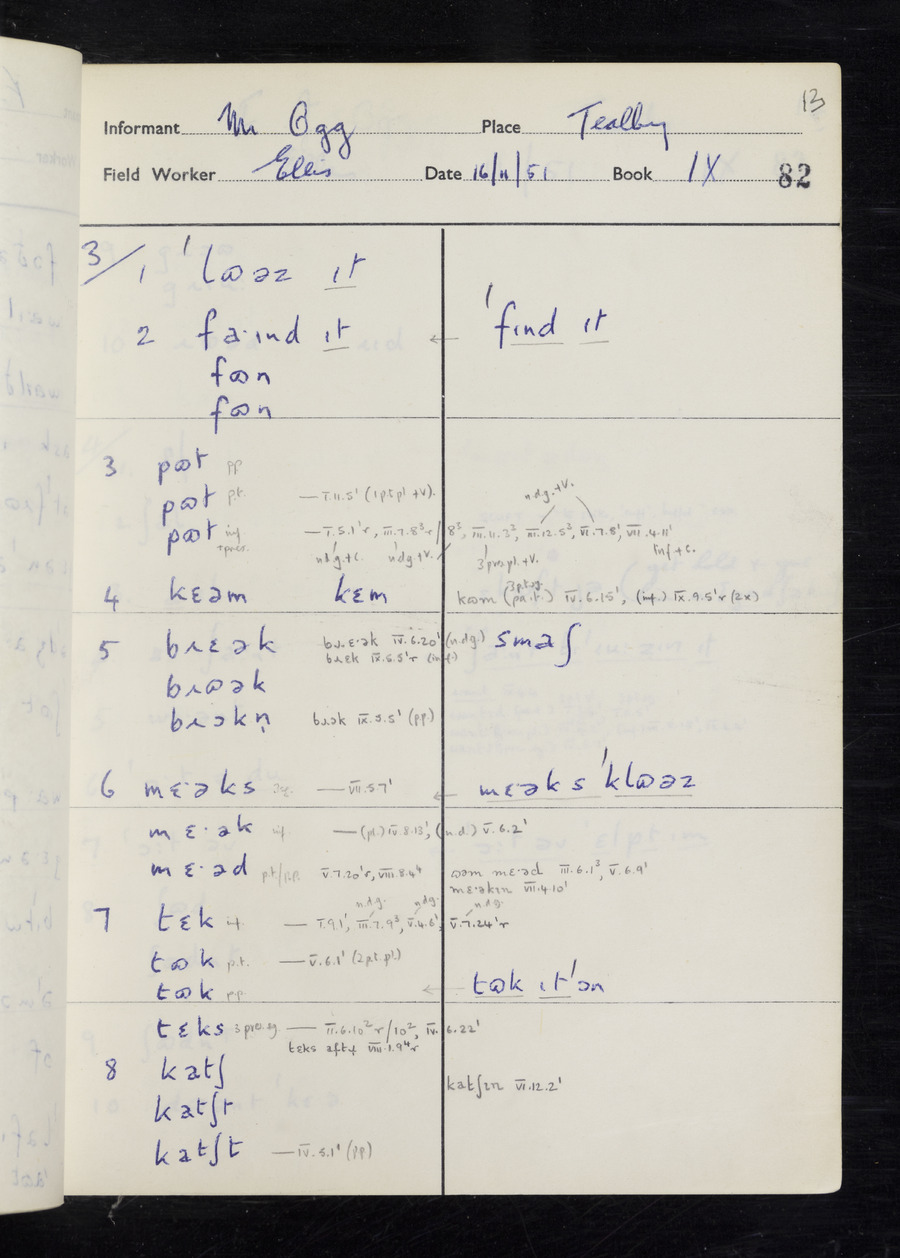 13
Informant Mr Ogg Place Tealby
Field Worker Ellis Date 16/11/51 Book IX 82
3/ 1 ˈlɷəz ɪt
2 fa·ɪnd ɪt ← ˈfɪnd ɪt
fɷn
fɷn
3 pɷt pp.
pɷt p.t. — I.11.5' (1 pt pl +V).
n.dg.+V.
pɷt inf. +pres. — I.5.1'r, III.7.8³r/8³, III.11.3³, III.12.5³, VI.7.8', VII.4.11'
ndg+C. ndg+V. 3 prs.pl.+V. Inf+C.
3 pt.sg.
4 kɛəm kɛm kɷm (pa.t.) IV.6.15', (inf.) IX.9.5'r (2x)
5 bɹɛək bɹɛ·ək IV.6.20' (n.dg.) smaʃ
bɹɛk IX.5.5'r (inf.)
bɹɷək
bɹɔkn̩ bɹɔk IX.3.5' (pp.)
6 mɛ·əks 3sg. — VII.5.7' ← mɛ·əks ˈklɷəz
mɛ·ək inf. — (pl.) IV.8.13', (n.d.) V.6.2'
mɛ·əd p.t./p.p. V.7.20'r, VIII.8.4⁴ ɷəm mɛ·əd III.6.1³, V.6.9'
mɛ·əkɪn VII.4.10'
n.d.g. ndg. n.dg.
7 tɛk inf. — I.9.1', III.7.9³, V.4.6', V.7.24'r
tɷk p.t. — V.6.1' (2 pt.pl.)
tɷk pp. ← tɷk ɪtˈɔn
tɛks 3 prs.sg. — II.6.10²r/10², IV.6.22'
tɛks aftɚ VIII.1.9⁴r
8 katʃ katʃɪn VI.12.2'
katʃt
katʃt — IV.5.1' (pp)